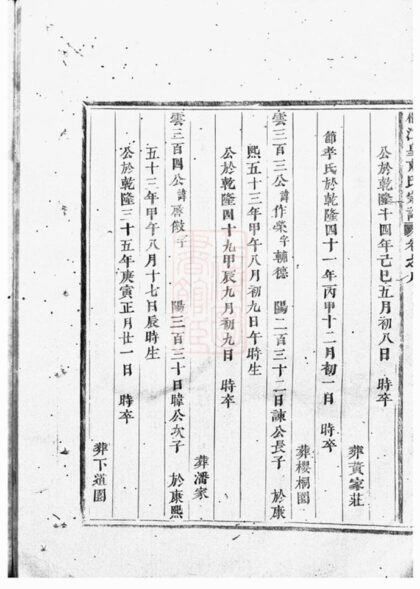 公於乾隆十四年己巳五月初八日　時卒
葬黃家莊
節孝氏於乾隆四十一年丙甲十二月初一日　時卒
葬櫻桐園
雲三百三公諱作棠字輔德　陽二百三十二日諫公長子　於康
熙五十三年甲午八月初九日午時生
公於乾隆四十九甲辰九月初九日　時卒
葬潘家
雲三百四公諱　字　陽三百三十日暐公次子　於康熙
五十三年甲午八月十七日辰時生
公於乾隆三十五年庚寅正月廿一日　時卒
葬下道園